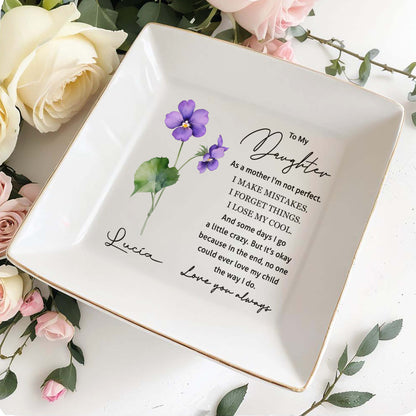 To My
Daughter
As a mother I'm not perfect.
I MAKE MISTAKES,
I FORGET THINGS.
I LOSE MY COOL.
And some days I go
a little crazy. But it's okay
because in the end, no one
could ever love my child
the way I do.
Love you always
Lucía